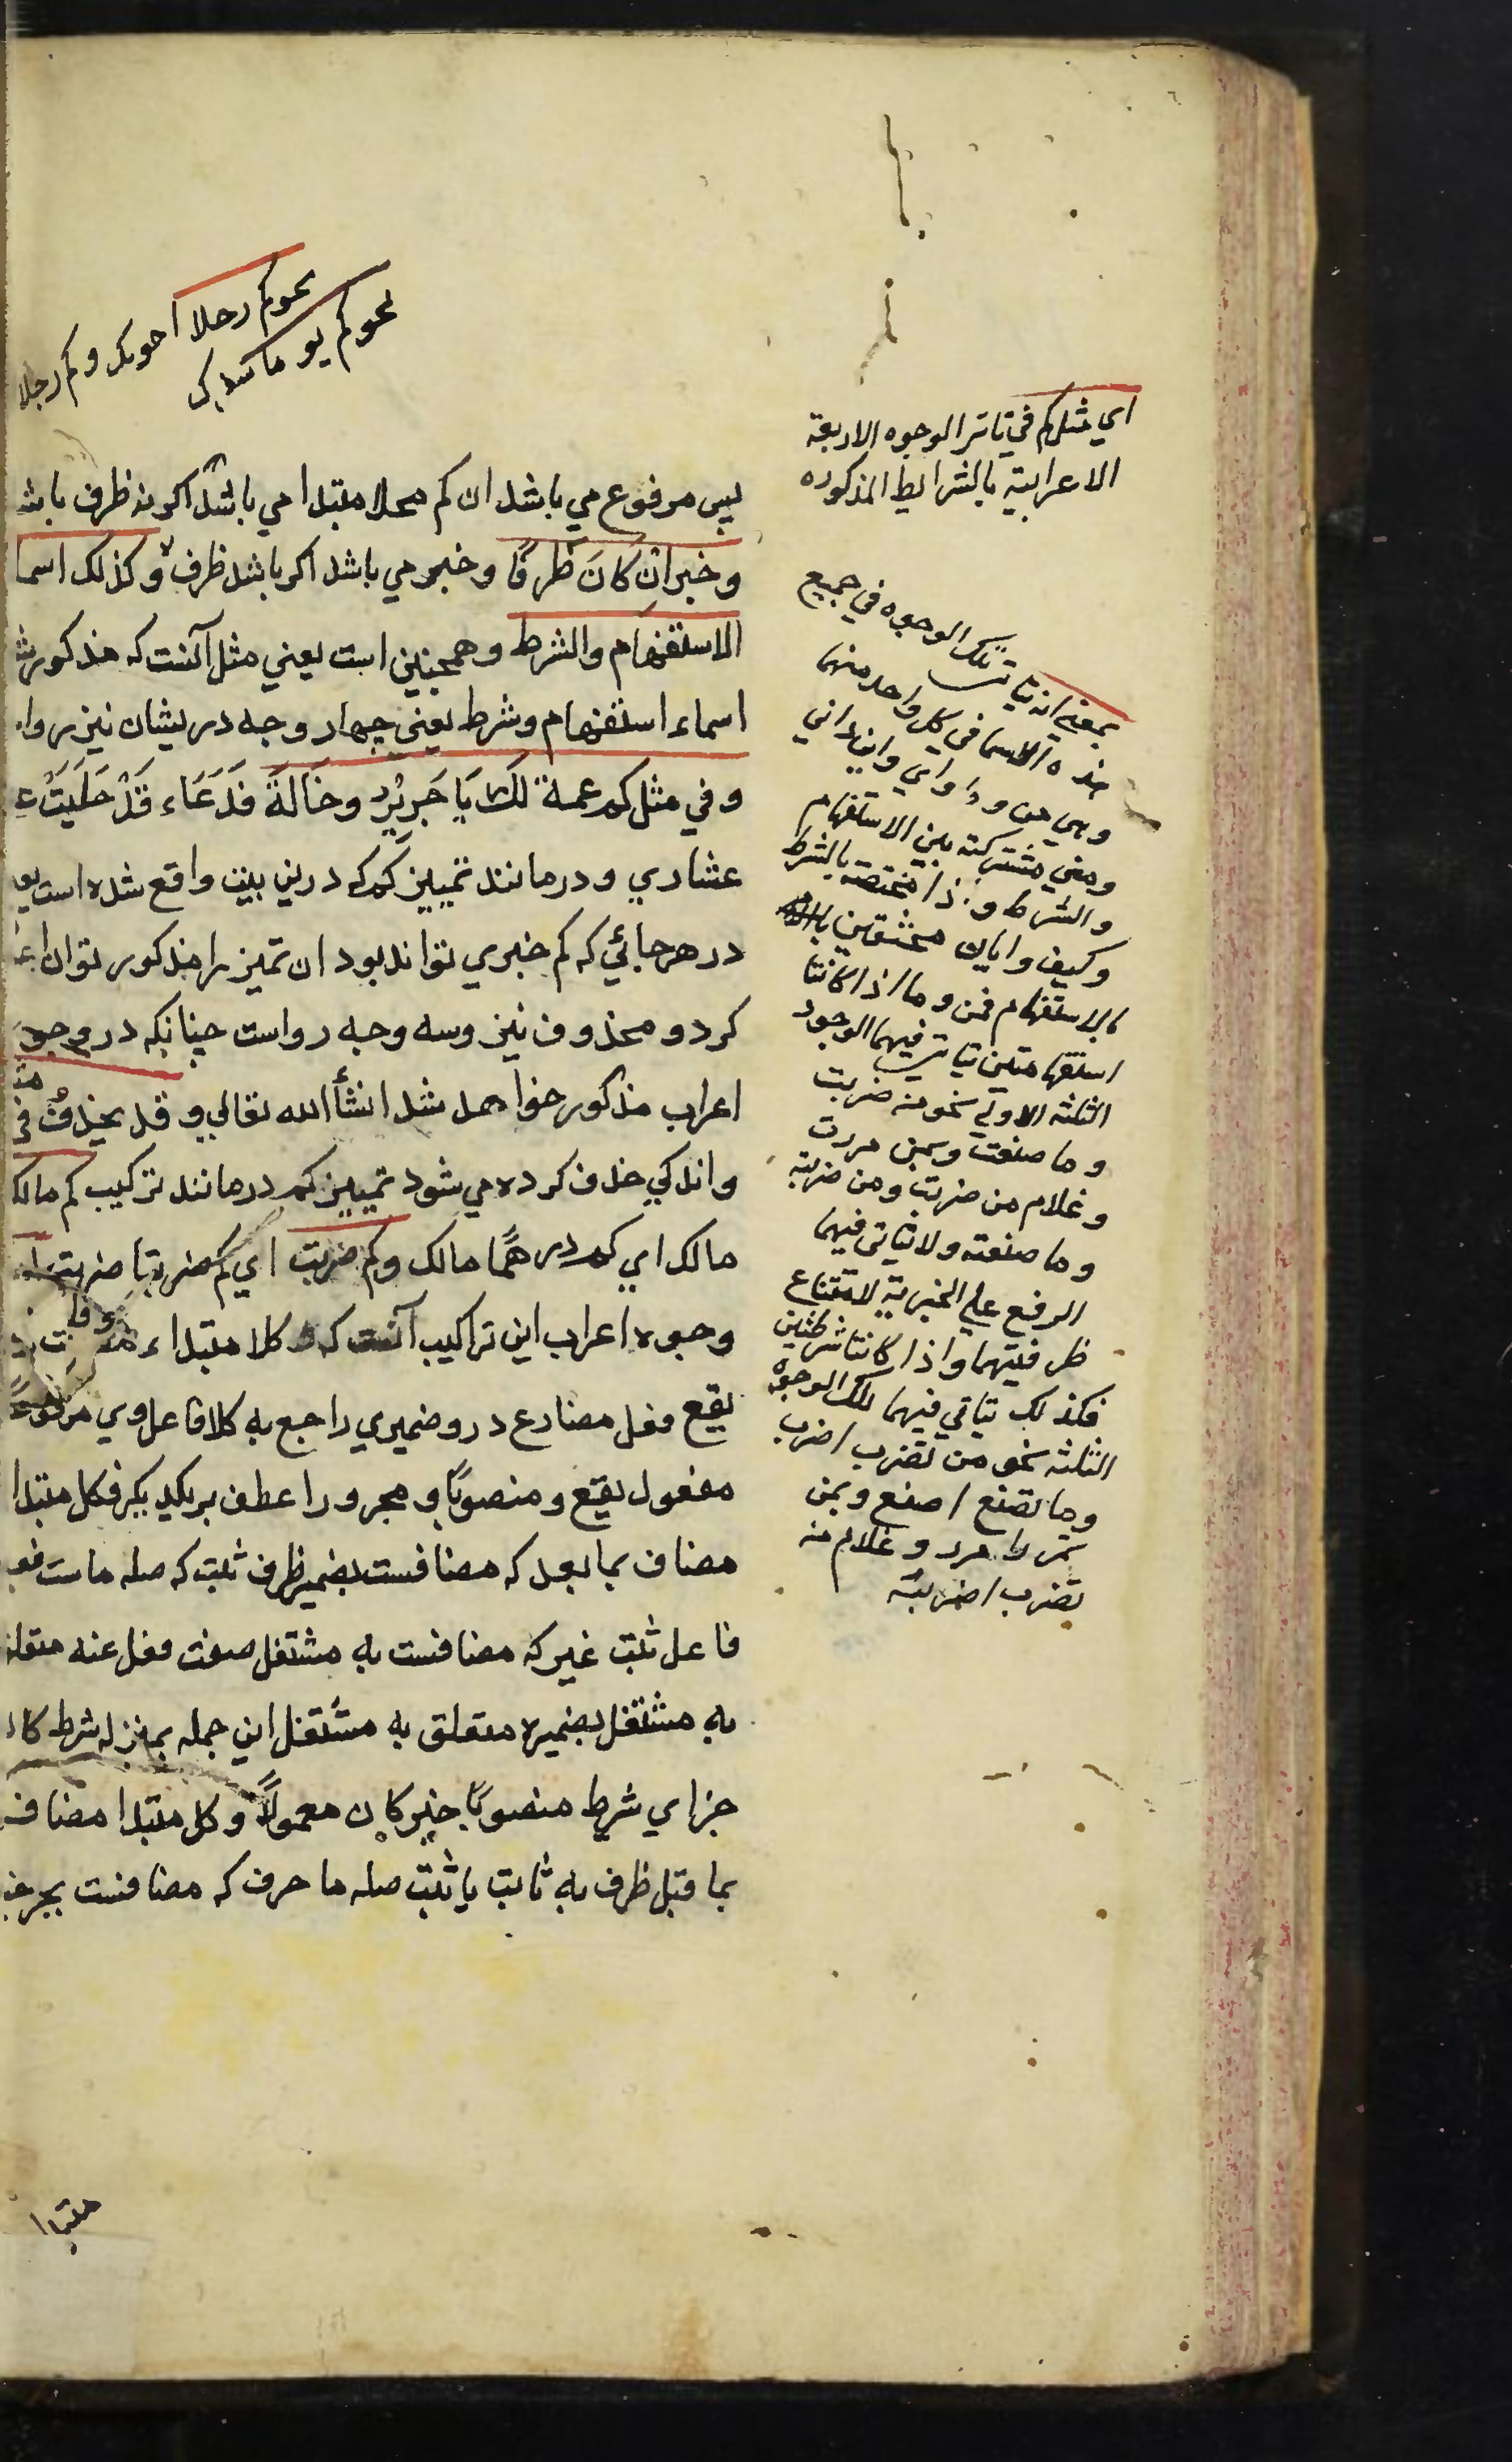 نحو كم رجلا اخوتك وكم رجلا
نحو كم يوما سفرك
پس مرفوع مي باشد ان كم محلا مبتدا مي باشد اكر نه ظرف باشد
وخبر ان كَانَ ظَرفًا وخبر مي باشد اكر باشد ظرف وكذلك اسما
الاستفهام والشرط وهمچنين است يعني مثل آنست كه مذكور شد
اسماء استفهام وشرط يعني چهار وجه دريشان نيز روا
وفي مثل كم عمة لَكَ يَا جَرِيْرُ وخَالَةً فَدَعَاء قَدْ حَلَبَتْ ع
عشاري ودر مانند تمييز كم كه درين بيت واقع شده است يع
در هر جائي كه كم خبري تواند بود ان تميز را مذكور توان
كرد و محذوف نيز وسه وجه رواست چنانكه در وجوه
اعراب مذكور خواهد شد انشأ الله تعالي وقد يحذف في مثل
واندكي حذف كرده مي شود تمييز كم در مانند تركيب كم مالك
مالك اي كم درهمًا مالك وكم ضربت اي كم ضربة ضربت
وجوه اعراب اين تراكيب آنست كه كلا مبتداء
يقع فعل مضارع درو ضميري راجع به كلا فاعل وي مرفوعًا
مفعول يقع ومنصوبًا و مجرورا عطف بريكديكر فكل مبتدا
مضاف بما بعد كه مضافست بضمير ظرف ثبت كه صله ماست فعل
فاعل ثبت غير كه مضافست به مشتغل صفت فعل عنه متعلق
به مشتغل بضميره متعلق به مشتغل اين جمله بمنزله شرط كان
جزاي شرط منصوبًا خبر كان معمولًا وكل مبتدا مضاف
بما قبل ظرف به ثابت يا ثبت صله ما حرف كه مضافست بجر
مبتدا
اي مثل كم في تاتر الوجوه الاربعة
الاعرابية بالشرايط المذكوره
بمعني انه يتاتي تلك الوجوه في جميع
هذه الاسما في كل واحد منها
وهي من وما واي واين واني
ومتي مشتركة بين الاستفهام
والشرط واذا مختصة بالشرط
وكيف وايان مختصتين
بالاستفهام فمن وما اذا كانتا
استفهامتين يتاتي فيهما الوجود
الثلثه الاولي نحو من ضربت
وما صنعت وبمن مررت
وغلام من ضربت ومن ضربته
وما صنعته ولا يتاتي فيهما
الرفع علي الخبرية لامتناع
ظرفيتهما واذا كانتا شرطيتين
فكذلك يتاتي فيهما تلك الوجوه
الثلثه نحو من تضرب اضرب
وما تصنع اصنع وبمن
تمرر امرر وغلام من
تضرب اضربه